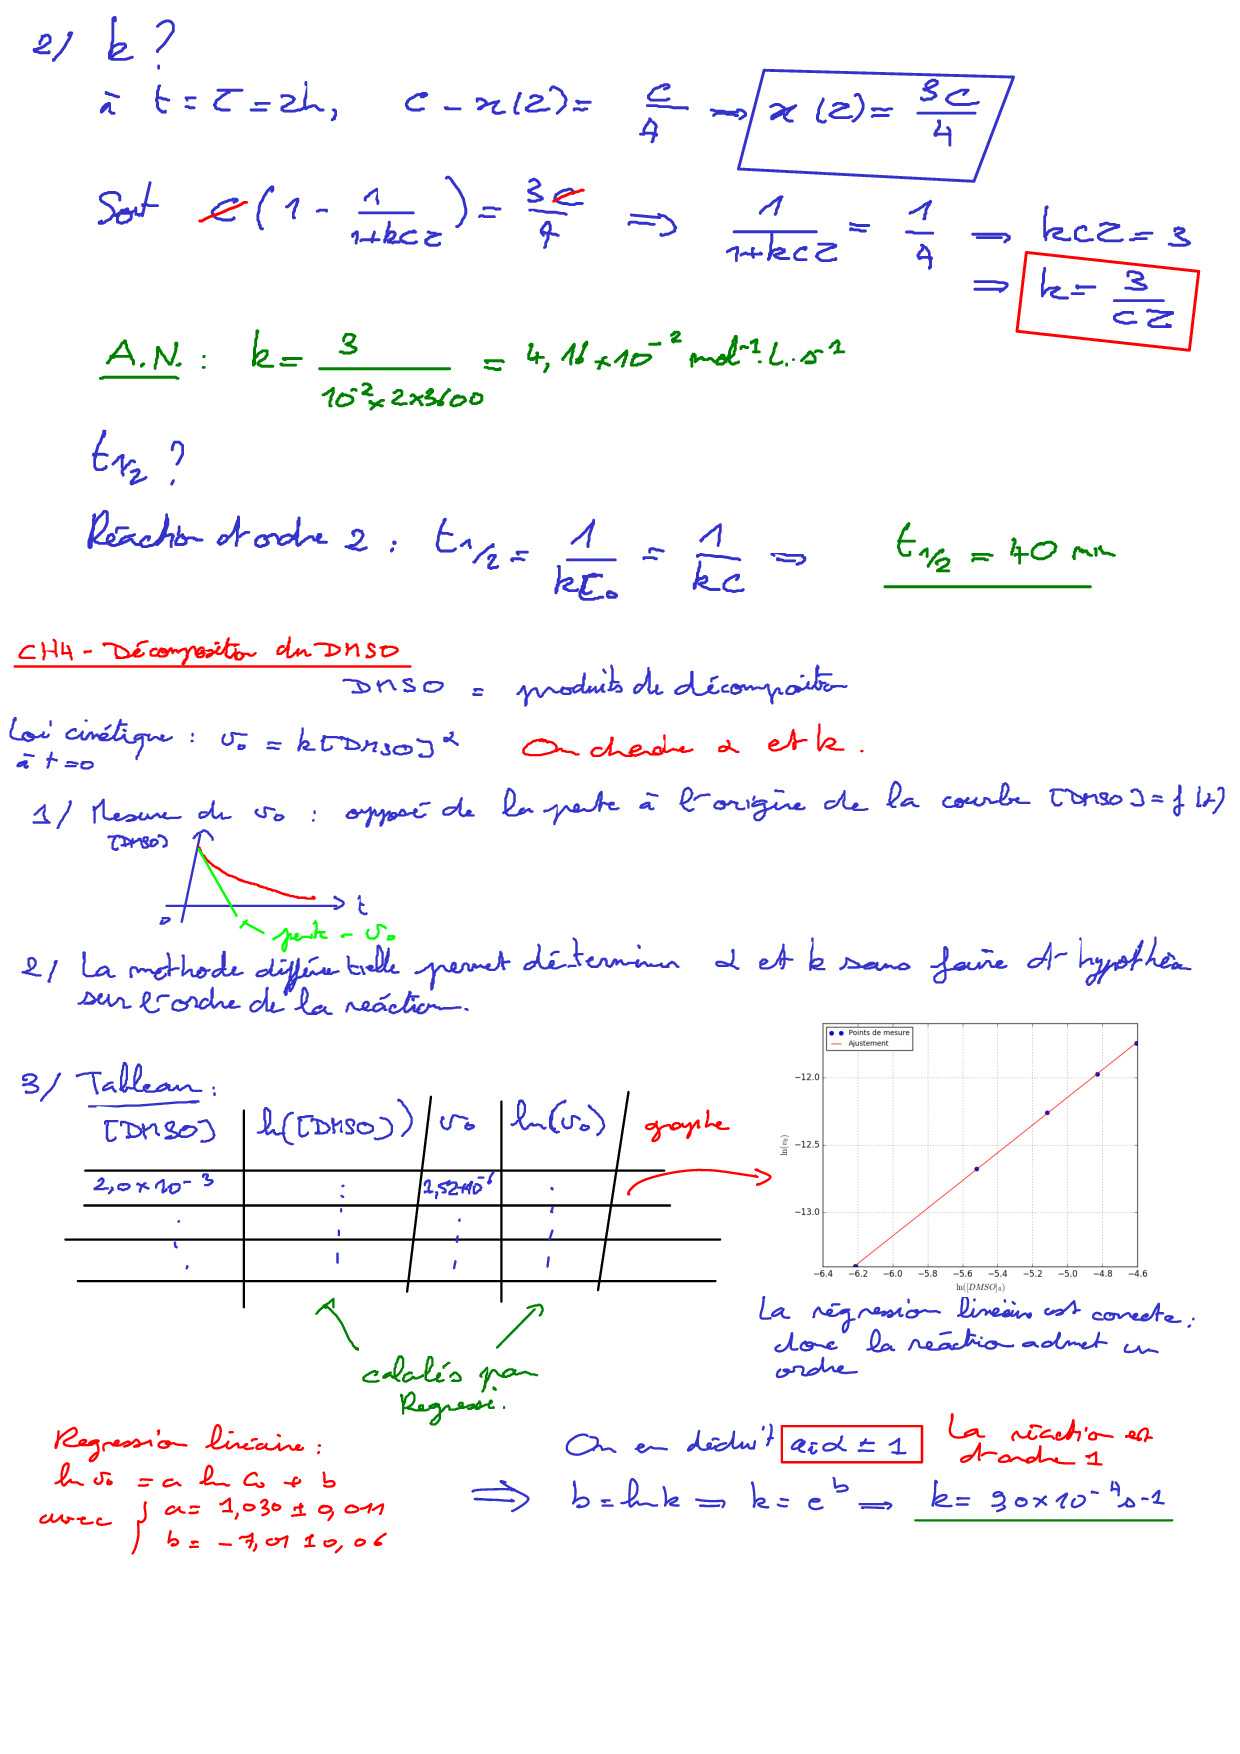 2/ k ?
à t = τ = 2h, c - x(τ) = c/4 ⟹ x(τ) = 3c/4
Soit c(1 - 1/(1+kcτ)) = 3c/4 ⟹ 1/(1+kcτ) = 1/4 ⟹ kcτ = 3
⟹ k = 3/(cτ)
A.N. : k = 3/(10^-2 × 2×3600) = 4,16 × 10^-2 mol^-1.L.s^-1
t1/2 ?
Réaction d'ordre 2 : t1/2 = 1/(kC0) = 1/(kc) ⟹ t1/2 = 40 min
CH4 - Décomposition du DMSO
DMSO = produits de décomposition
Loi cinétique : v0 = k[DMSO]^α On cherche α et k.
à t=0
1/ Mesure de v0 : opposé de la pente à l'origine de la courbe [DMSO] = f(t)
[DMSO]
0
t
pente - v0
2/ La méthode différentielle permet déterminer α et k sans faire d'hypothèse
sur l'ordre de la réaction.
3/ Tableau :
[DMSO] ln([DMSO]) v0 ln(v0) graphe
2,0 × 10^-3 1,52×10^-6
calculés par
Regressi.
Points de mesure
Ajustement
−12.0
−12.5
−13.0
ln(v0)
−6.4 −6.2 −6.0 −5.8 −5.6 −5.4 −5.2 −5.0 −4.8 −4.6
ln([DMSO]0)
La régression linéaire est correcte :
donc la réaction admet un
ordre
Regression linéaire :
ln v0 = a ln C0 + b
avec { a = 1,030 ± 0,011
b = -7,01 ± 0,06
On en déduit a = α = 1 La réaction est
d'ordre 1
⟹ b = ln k ⟹ k = e^b ⟹ k = 9,0×10^-4 s^-1